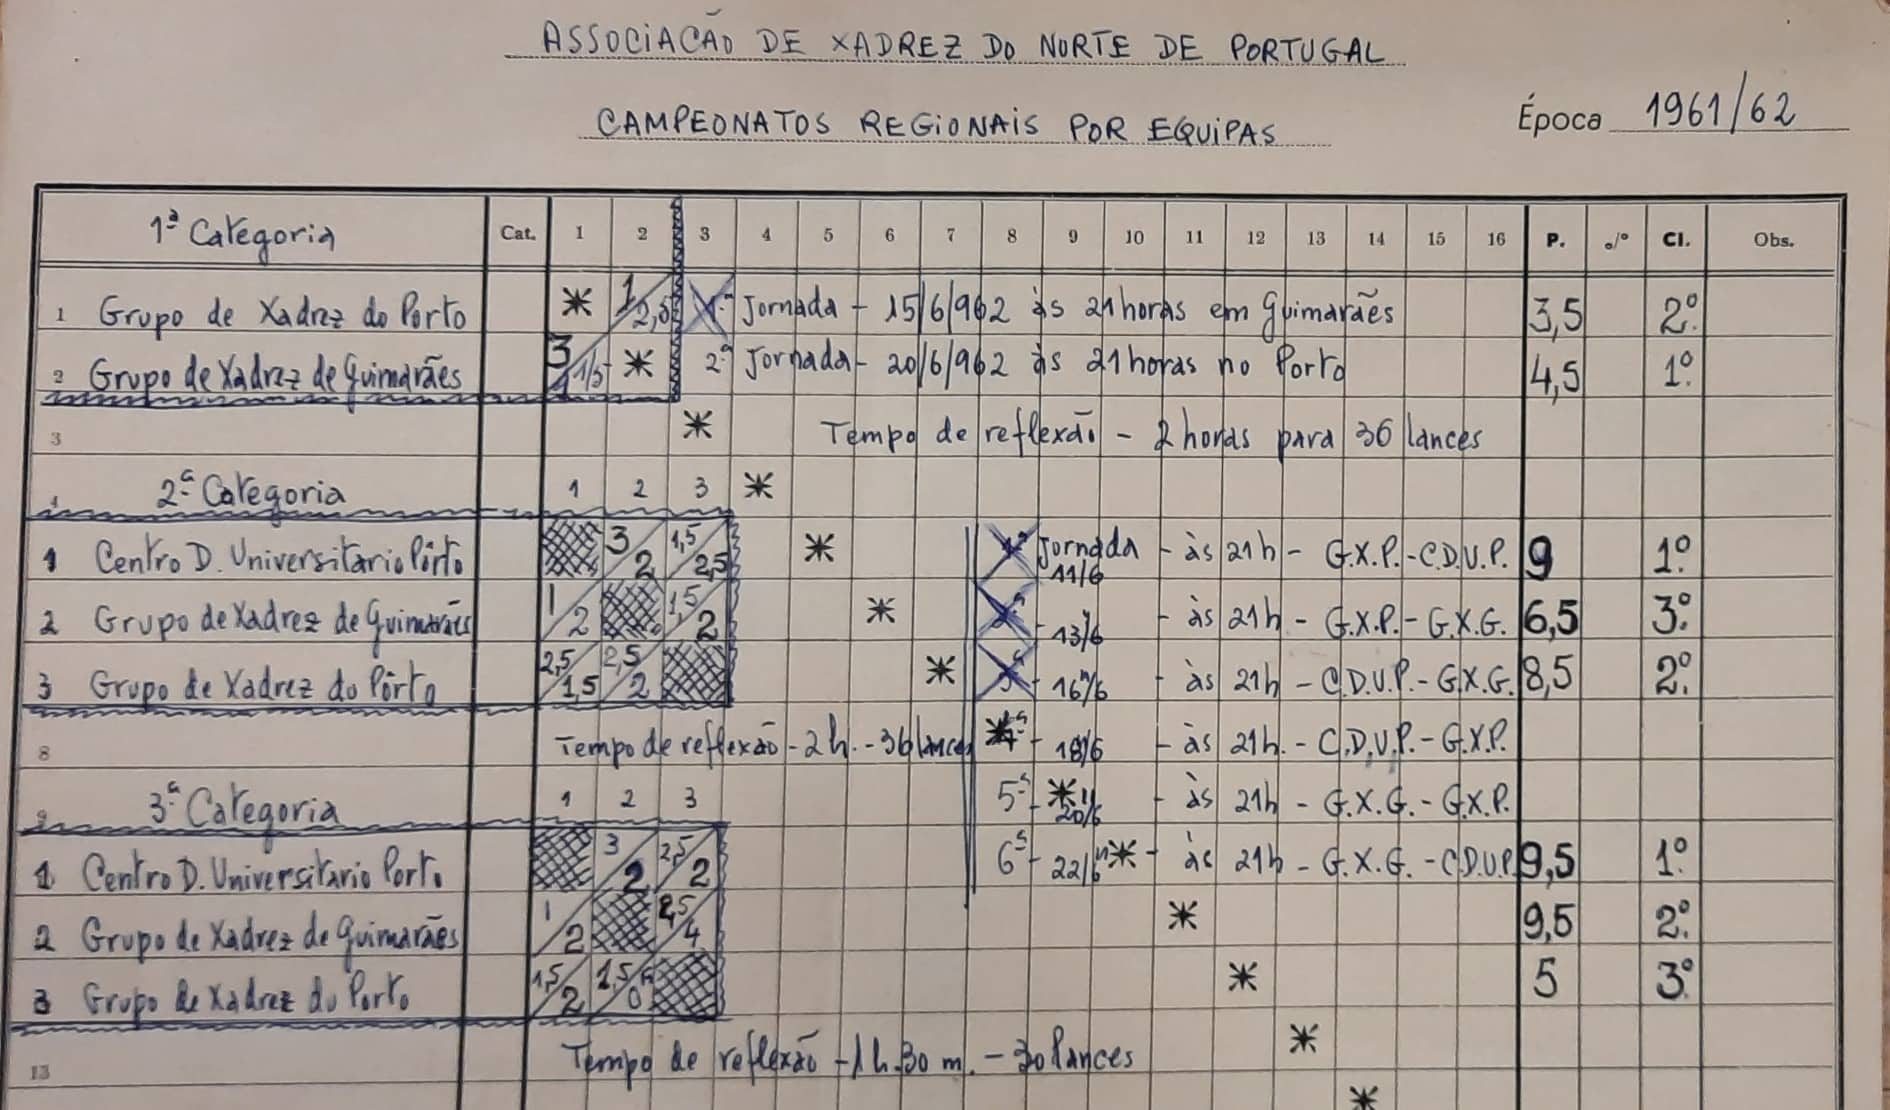 ASSOCIACÃO DE XADREZ DO NORTE DE PORTUGAL
CAMPEONATOS REGIONAIS POR EQUIPAS Época 1961/62
1ª Categoria Cat. 1 2 3 4 5 6 7 8 9 10 11 12 13 14 15 16 P. º/º Cl. Obs.
1 Grupo de Xadrez do Porto * 1/2,5 1ª Jornada - 15/6/962 às 21 horas em Guimarães 3,5 2º
2 Grupo de Xadrez de Guimarães 3/1,5 * 2ª Jornada - 20/6/962 às 21 horas no Porto 4,5 1º.
3 * Tempo de reflexão - 2 horas para 36 lances
2ª Categoria 1 2 3 *
1 Centro D. Universitario Pôrto 3/2 1,5/2,5 * 1ª Jornada 11/6 - às 21h - G.X.P. - C.D.U.P. 9 1º
2 Grupo de Xadrez de Guimarães 1/2 1,5/2 * 13/6 - às 21h - G.X.P. - G.X.G. 6,5 3º
3 Grupo de Xadrez do Pôrto 2,5/1,5 2,5/2 * 3ª - 16/6 - às 21h - C.D.U.P. - G.X.G. 8,5 2º
8 Tempo de reflexão - 2h. - 36 lances * 4ª - 18/6 - às 21h. - C.D.U.P. - G.X.P.
9 3ª Categoria 1 2 3 5ª - * 20/6 - às 21h - G.X.G. - G.X.P.
1 Centro D. Universitario Porto 3/2 2,5/2 6ª - 22/6 * - às 21h - G.X.G. - C.D.U.P. 9,5 1º
2 Grupo de Xadrez de Guimarães 1/2 2,5/4 * 9,5 2º
3 Grupo de Xadrez do Porto 1,5/2 1,5/0 * 5 3º
13 Tempo de reflexão - 1h.30 m. - 30 lances *
*